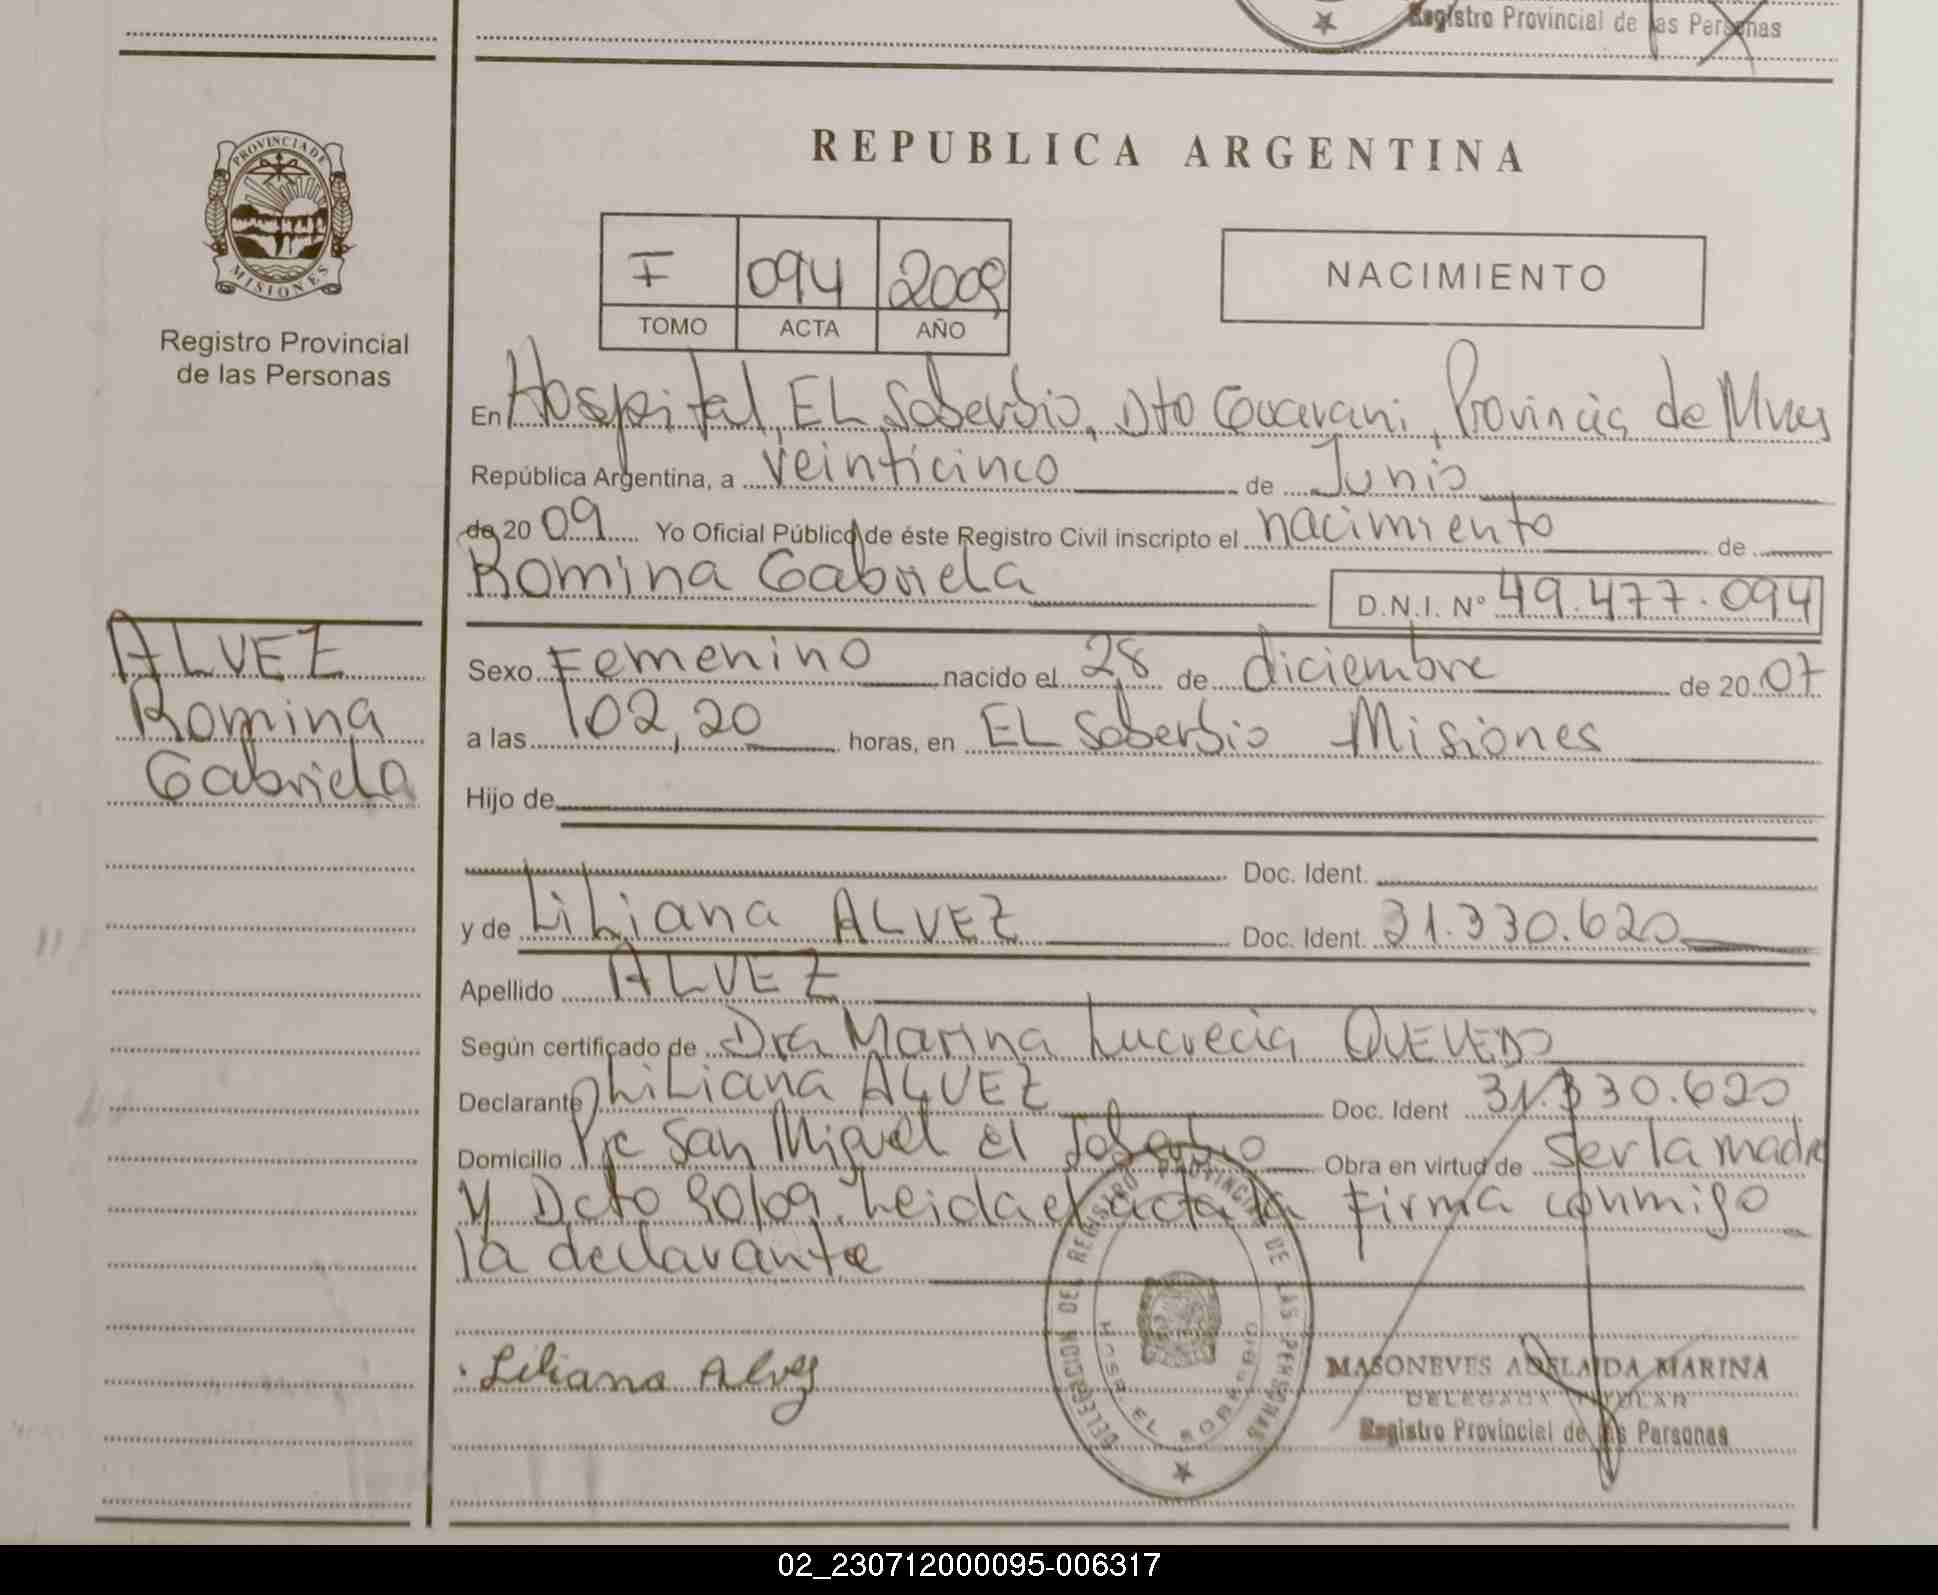 Registro Provincial de las Personas
PROVINCIA DE
MISIONES
Registro Provincial
de las Personas
ALVEZ
Romina
Gabriela
REPUBLICA ARGENTINA
I 094 2009
TOMO ACTA AÑO
NACIMIENTO
En Hospital, EL Soberbio, Dto Guarani, Provincia de Mnes
República Argentina, a veinticinco de Junio
de 20 09 Yo Oficial Público de éste Registro Civil inscripto el nacimiento de
Romina Gabriela D.N.I. Nº 49.477.094
Sexo Femenino nacido el 28 de diciembre de 20 07
a las 02,20 horas, en EL Soberbio Misiones
Hijo de
Doc. Ident.
y de Liliana ALVEZ Doc. Ident. 31.330.620
Apellido ALVEZ
Según certificado de Dra Marina Lucrecia QUEVEDO
Declarante Liliana ALVEZ Doc. Ident 31.330.620
Domicilio Pje San Miguel El Soberbio Obra en virtud de ser la madre
y Dcto 90/09. Leida el acta la firma conmigo
la declarante
Liliana Alvez
DELEGACION DEL REGISTRO PROVINCIAL DE LAS PERSONAS
HOSP. EL SOBERBIO
MASONEVES ADELAIDA MARINA
DELEGADA TITULAR
Registro Provincial de las Personas
02_230712000095-006317